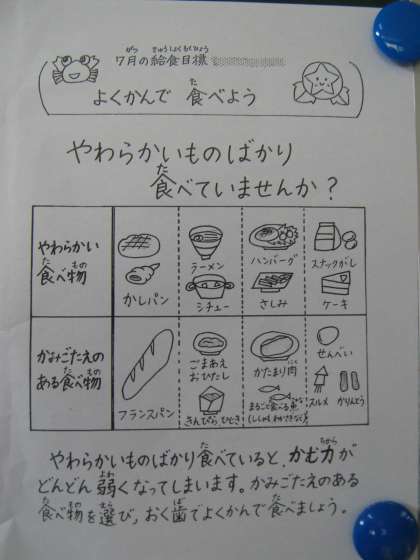 7月の給食目標
よくかんで 食べよう
やわらかいものばかり
食べていませんか？
やわらかい
食べ物
かしパン
ラーメン
シチュー
ハンバーグ
さしみ
スナックがし
ケーキ
かみごたえの
ある食べ物
フランスパン
ごまあえ
おひたし
きんぴら ひじき
かたまり肉
まるごと食べる魚
(ししゃも わかさぎなど)
せんべい
スルメ
かりんとう
やわらかいものばかり食べていると、かむ力が
どんどん弱くなってしまいます。かみごたえのある
食べ物を選び，おく歯でよくかんで食べましょう。